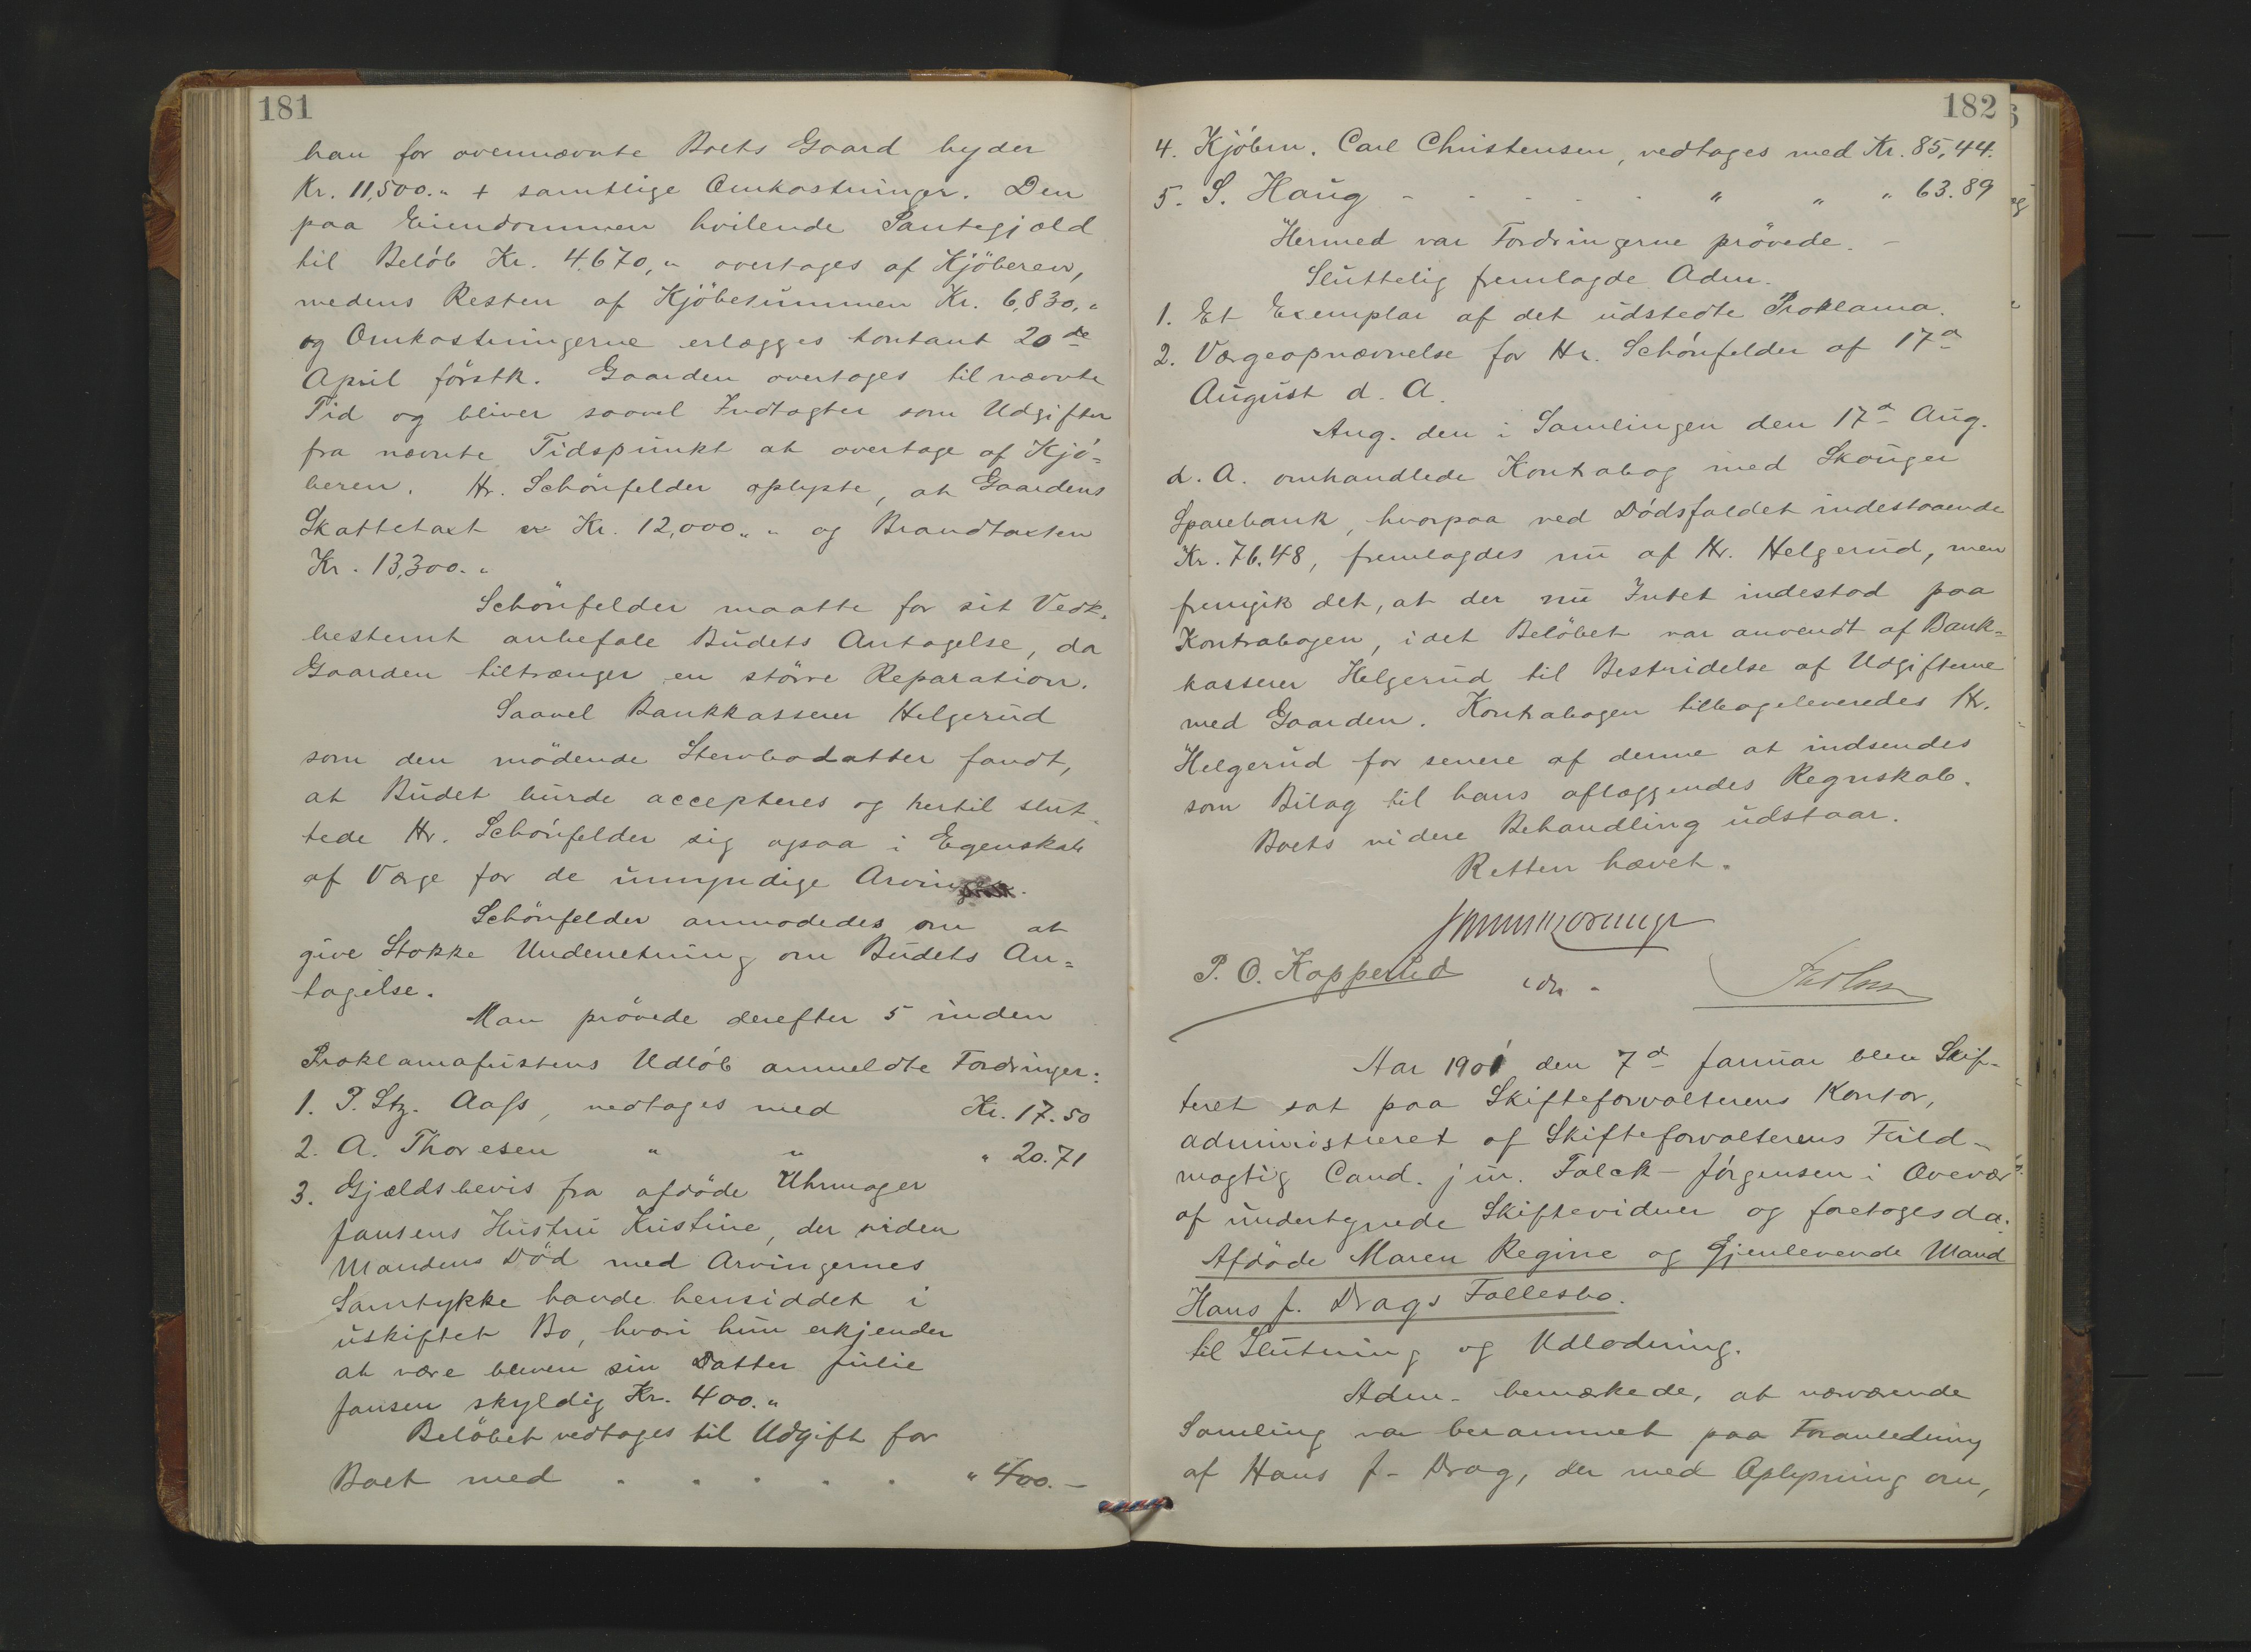 181
han for ovennævnte Boets Gaard byder
Kr. 11,500.„ + samtlige Omkostninger. Den
paa Eiendommen hvilende Pantegjæld
til Beløb Kr. 4.670,„ overtages af Kjöberen,
medens Resten af Kjöbesummen Kr. 6,830,„
og Omkostningerne erlægges kontant 20de
April förstk. Gaarden overtages til nævnte
Tid og bliver saavel Indtægter som Udgifter
fra nævnte Tidspunkt at overtage af Kjö-
beren. Hr. Schönfelder oplyste, at Gaardens
Skattetaxt er Kr. 12,000.„ og Brandtaxten
Kr. 13,300.„
Schönfelder maatte for sit Vedk.
bestemt anbefale Budets Antagelse, da
Gaarden tiltrænger en större Reparation.
Saavel Bankkasserer Helgerud
som den mödende Stervbodatter fandt,
at Budet burde accepteres og hertil slut-
tede Hr. Schönfelder sig ogsaa i Egenskab
af Værge for de umyndige Arvinger.
Schönfelder anmodedes om at
give Stokke Underretning om Budets An-
tagelse.
Man prövede derefter 5 inden
Proklamafristens Udlöb anmeldte Fordringer:
1. P. Stz. Aass, vedtages med Kr. 17.50
2. A. Thoresen „ „ „ 20.71
3. Gjældsbevis fra afdöde Uhrmager
Jansens Hustru Kristine, der siden
Mandens Död med Arvingernes
Samtykke havde hensiddet i
uskiftet Bo, hvori hun erkjender
at være bleven sin Datter Julie
Jansen skyldig Kr. 400.„
Belöbet vedtages til Udgift for
Boet med . . . . . „ 400.—
182
4. Kjöbm. Carl Christensen, vedtages med Kr. 85,44.
5. S. Haug - - - - - „ „ „ 63.89
Hermed var Fordringerne prövede. –
Sluttelig fremlagde Adm.
1. Et Exemplar af det udstedte Proklama.
2. Værgeopnævnelse for Hr. Schönfelder af 17d
August d. A.
Ang. den i Samlingen den 17d Aug.
d. A. omhandlede Kontrabog med Skouger
Sparebank, hvorpaa ved Dödsfaldet indestaaende
Kr. 76.48, fremlagdes nu af Hr. Helgerud, men
fremgik det, at der nu Intet indestod paa
Kontrabogen, idet Belöbet var anvendt af Bank-
kasserer Helgerud til Bestridelse af Udgifterne
med Gaarden. Kontrabogen tilbageleveredes Hr.
Helgerud for senere af denne at indsendes
som Bilag til hans aflæggendes Regnskab.
Boets videre Behandling udstaar.
Retten hævet.
P. O. Kopperud
Aar 1901 den 7d Januar blev Skif-
teret sat paa Skifteforvalterens Kontor,
administreret af Skifteforvalterens Fuld-
mægtig Cand. jur. Falck-Jörgensen i Overvær
af undertegnede Skiftevidner og foretoges da:
Afdöde Maren Regine og Gjenlevende Mand
Hans J. Drags Fællesbo.
til Slutning og Udlodning.
Adm. bemærkede, at nærværende
Samling var berammet paa Foranledning
af Hans J. Drag, der med Oplysning om,